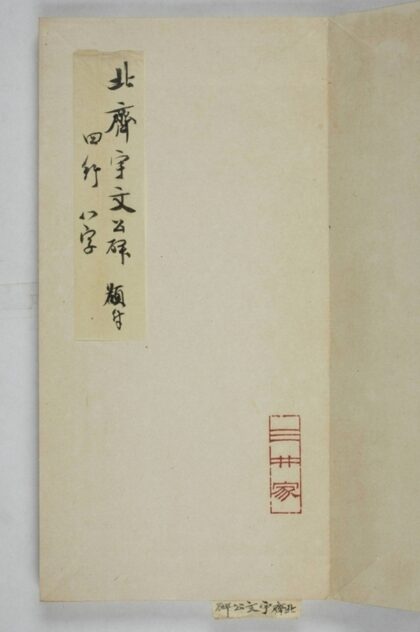 北齊宇文公碑 額出
四行 八字
三井家
北齊宇文公碑